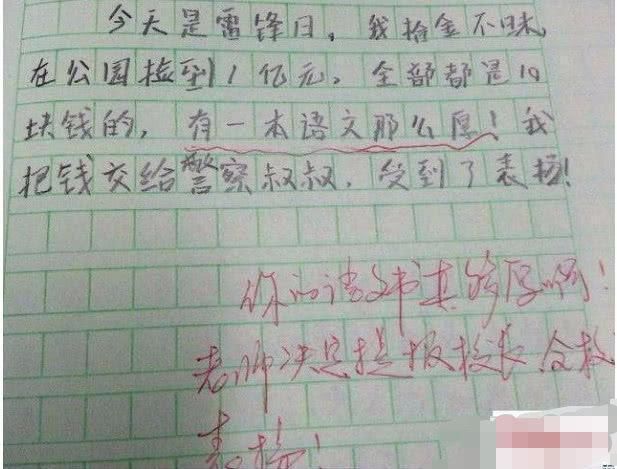 今天是雷锋日，我拾金不昧，
在公园捡到1亿元，全部都是10
块钱的，有一本语文那么愿！我
把钱交给警察叔叔，受到了表扬！
你的语文书真够厚啊！
老师决定提报校长，全校
表扬！